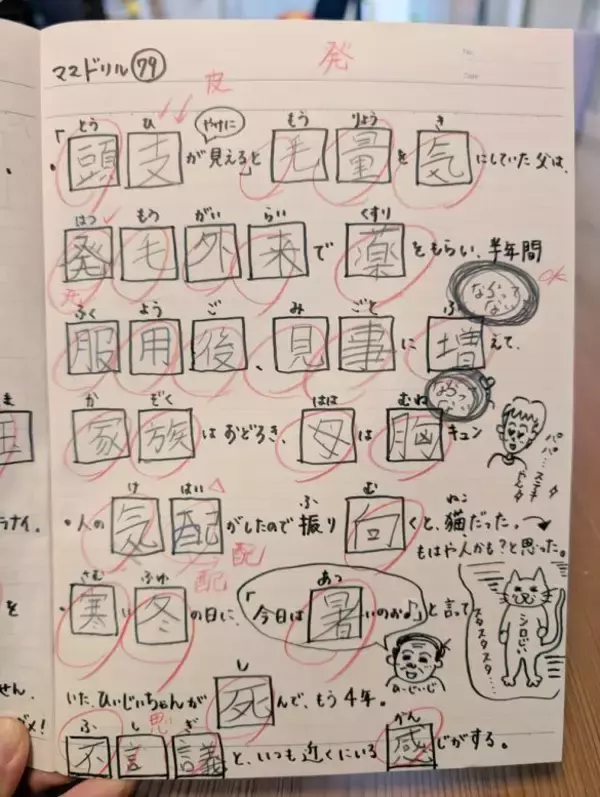 ママドリル 79
発
皮
とう ひ やけに もう りょう き
「頭支が見えると」毛量を気にしていた父は、
はつ もう がい らい くすり
発毛外来で薬をもらい、半年間
ふく よう ご み ごと ふ
服用後、見事に増えて、
OK
か ぞく はは むね
家族はおどろき、母は胸キュン
パパ…ステキやん
け はい ふ む ねこ
・人の気配がしたので振り向くと、猫だった。
配
もはや人かも?と思った。
配
さむ ふゆ あつ
・寒い冬の日に、「今日は暑いのぉ♪」と言って
シロじい
スタスタスタ…
ひいじいじ
し
いた、ひいじいちゃんが死んで、もう4年。
ふ し 思 ぎ かん
不言議と、いつも近くにいる感じがする。